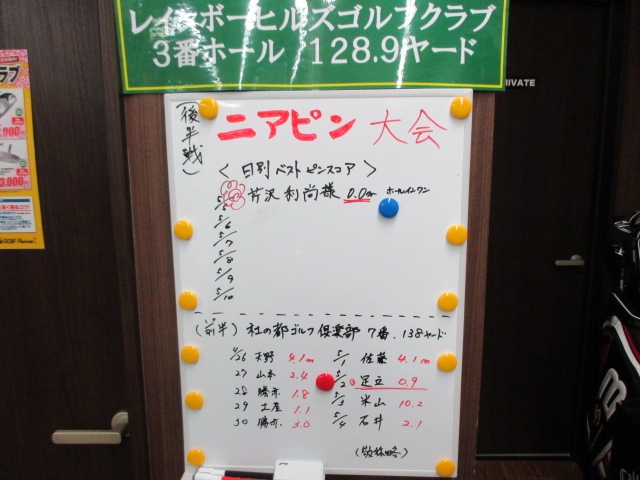 レインボーヒルズゴルフクラブ
3番ホール 128.9ヤード
PRIVATE
(後半戦)
ニアピン 大会
<日別ベストピンスコア>
5/5 芹沢 利尚様 0.0m ホールインワン
5/6
5/7
5/8
5/9
5/10
(前半) 杜の都ゴルフ倶楽部 7番. 138ヤード
4/26 天野 4.1m 5/1 佐藤 4.1m
27 山本 2.4 5/2 足立 0.9
28 勝亦 1.8 5/3 米山 10.2
29 土屋 1.1 5/4 石井 2.1
30 勝亦. 3.0
(敬称略)